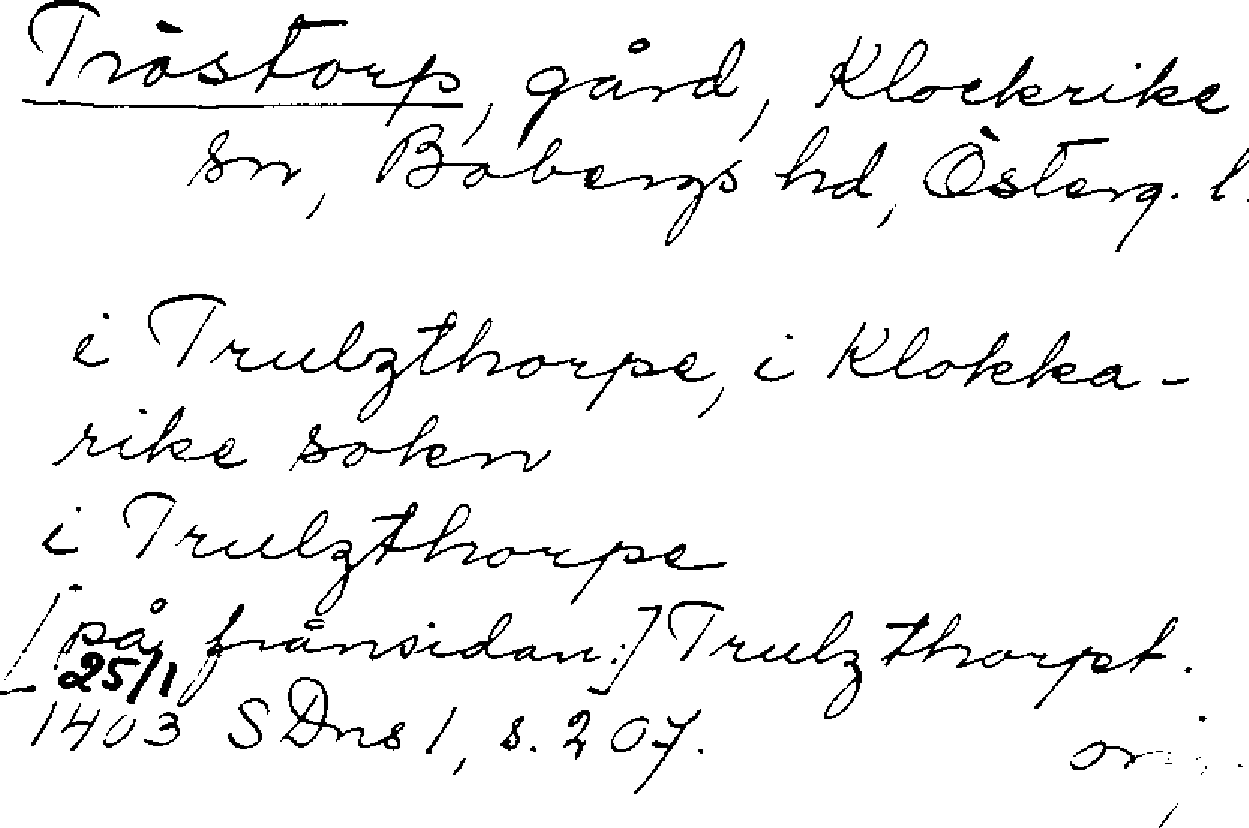 Tröstorp, gård, Klockrike
sn, Bobergs hd, Österg. l.
i Trulzthorpe, i Klokka-
rike sokn
i Trulzthorpe
[på frånsidan:] Trulzthorpt.
25/1
1403 SDns 1, s. 207.
orig.